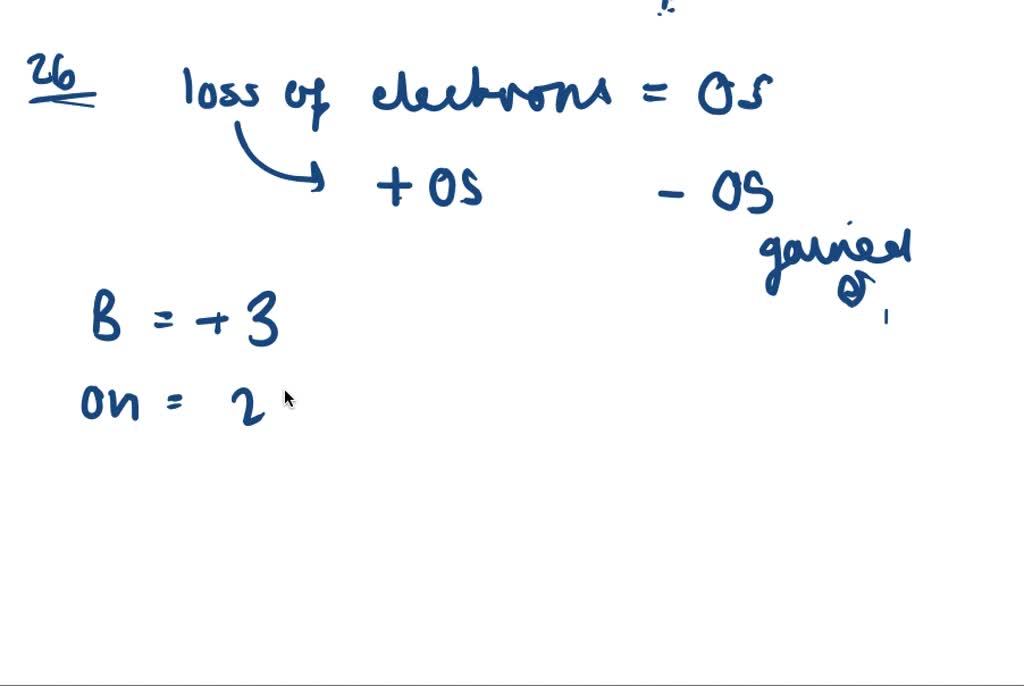 26 loss of electrons = OS
+ OS - OS
gained
B = + 3
on = 2